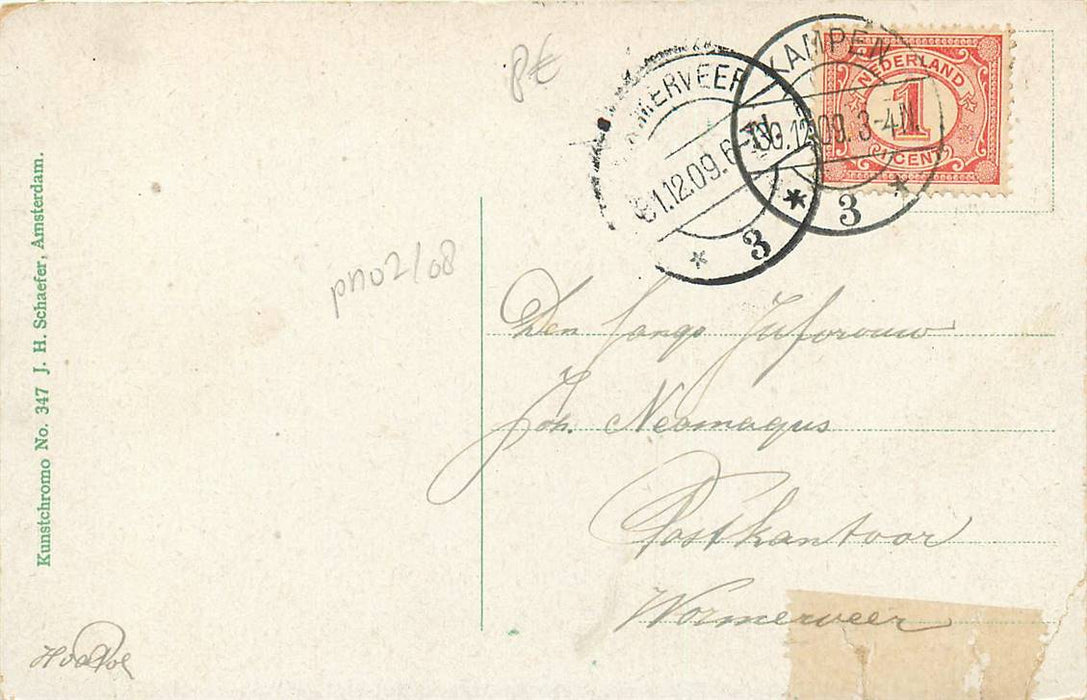 8€
KAMPEN
30.12.09. 3-4N.
3
NEDERLAND
1
CENT
WORMERVEER
31.12.09. 6-
3
Kunstchromo No. 347 J. H. Schaefer, Amsterdam.
pn02/08
Den Jonge Juforouw
Joh. Neomagus
Postkantoor
Wormerveer